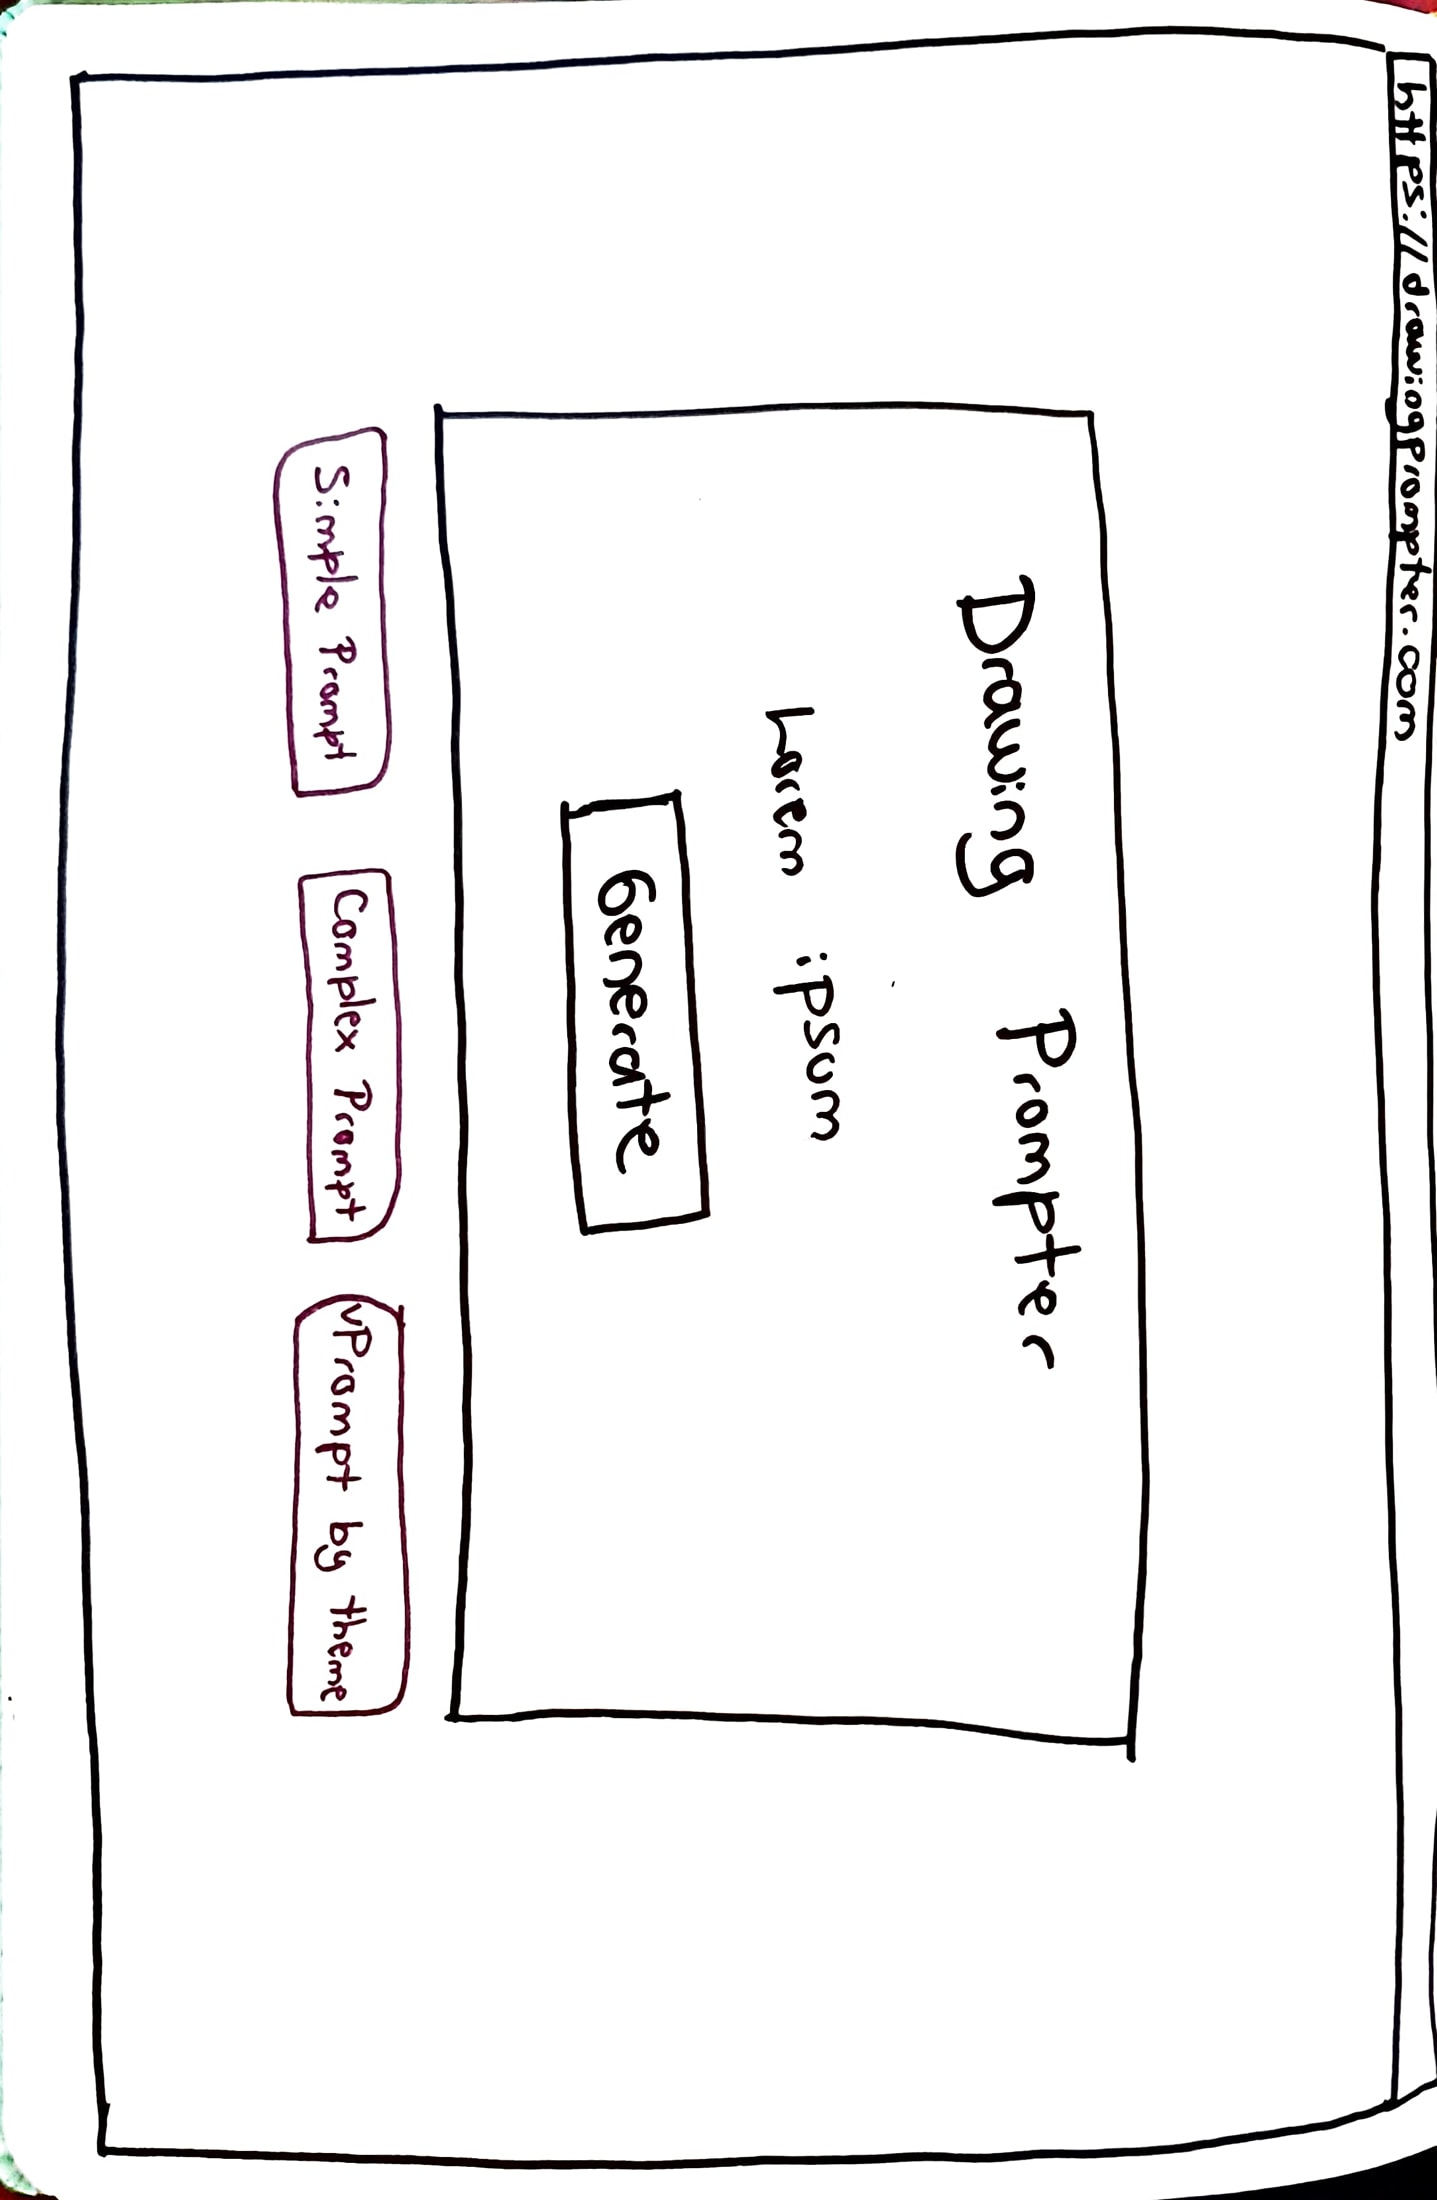 https://drawingprompter.com
Drawing Prompter
Lorem ipsum
Generate
Simple Prompt
Complex Prompt
vPrompt by theme